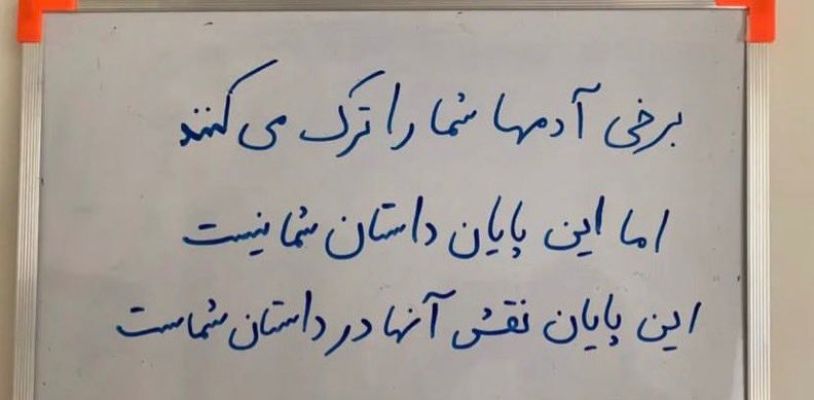 برخی آدمها شما را ترک می کنند
اما این پایان داستان شما نیست
این پایان نقش آنها در داستان شماست